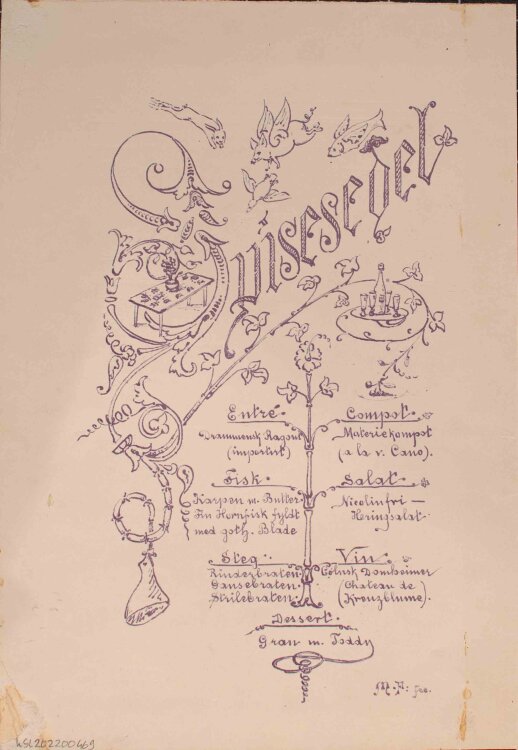 Spisesedel
Entré.
Drammensk Ragout
(importirt)
Fisk.
Karpen m. Butler
Fin Hornfisk fyldt
med goth. Blade
Steg.
Rinderbraten.
Gansebraten.
Strilebraten.
Compot.
Materiekompot
(a la v. Cano).
Salat.
Nicotinfri —
Heringsalat.
Vin.
Cölnsk Domheimer
(Chateau de
Kreuzblume).
Dessert.
Gran m. Toddy
M. P: fec.